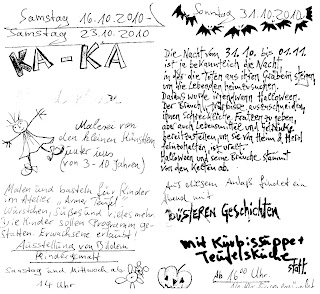 Samstag 16.10.2010
Samstag 23.10.2010
KA-KÄ
Malerei von
den kleinen Künstlern
unter uns
(von 3-10 Jahren)
Malen und basteln für Kinder
im Atelier "Arme
Würstchen, Süßes und vieles mehr
Die Kinder sollen Programm ge-
stalten. Erwachsene erlaubt!
Ausstellung von Bildern
Kinderzirkel
Samstag und Mittwoch ab
14 Uhr
Sonntag 31.10.2010
Die Nacht vom 31.10. bis 01.11.
ist ja bekanntlich die Nacht,
in der die Toten aus ihren Gräbern steigen,
um die Lebenden heimzusuchen.
Daraus wurde irgendwann Halloween.
Der Brauch, Kürbisse auszuschneiden,
ihnen schreckliche Fratzen zu geben
aber auch Lebensmittel und
bereitzustellen, um sie von Heim & Herd
fernzuhalten, ist uralt.
Halloween und seine Bräuche stammt
von den Kelten ab.
Aus diesem Anlaß findet ein
Abend mit
DÜSTEREN GESCHICHTEN
mit Kürbissuppe +
Teufelsküche
statt.
Ab 16:00 Uhr.